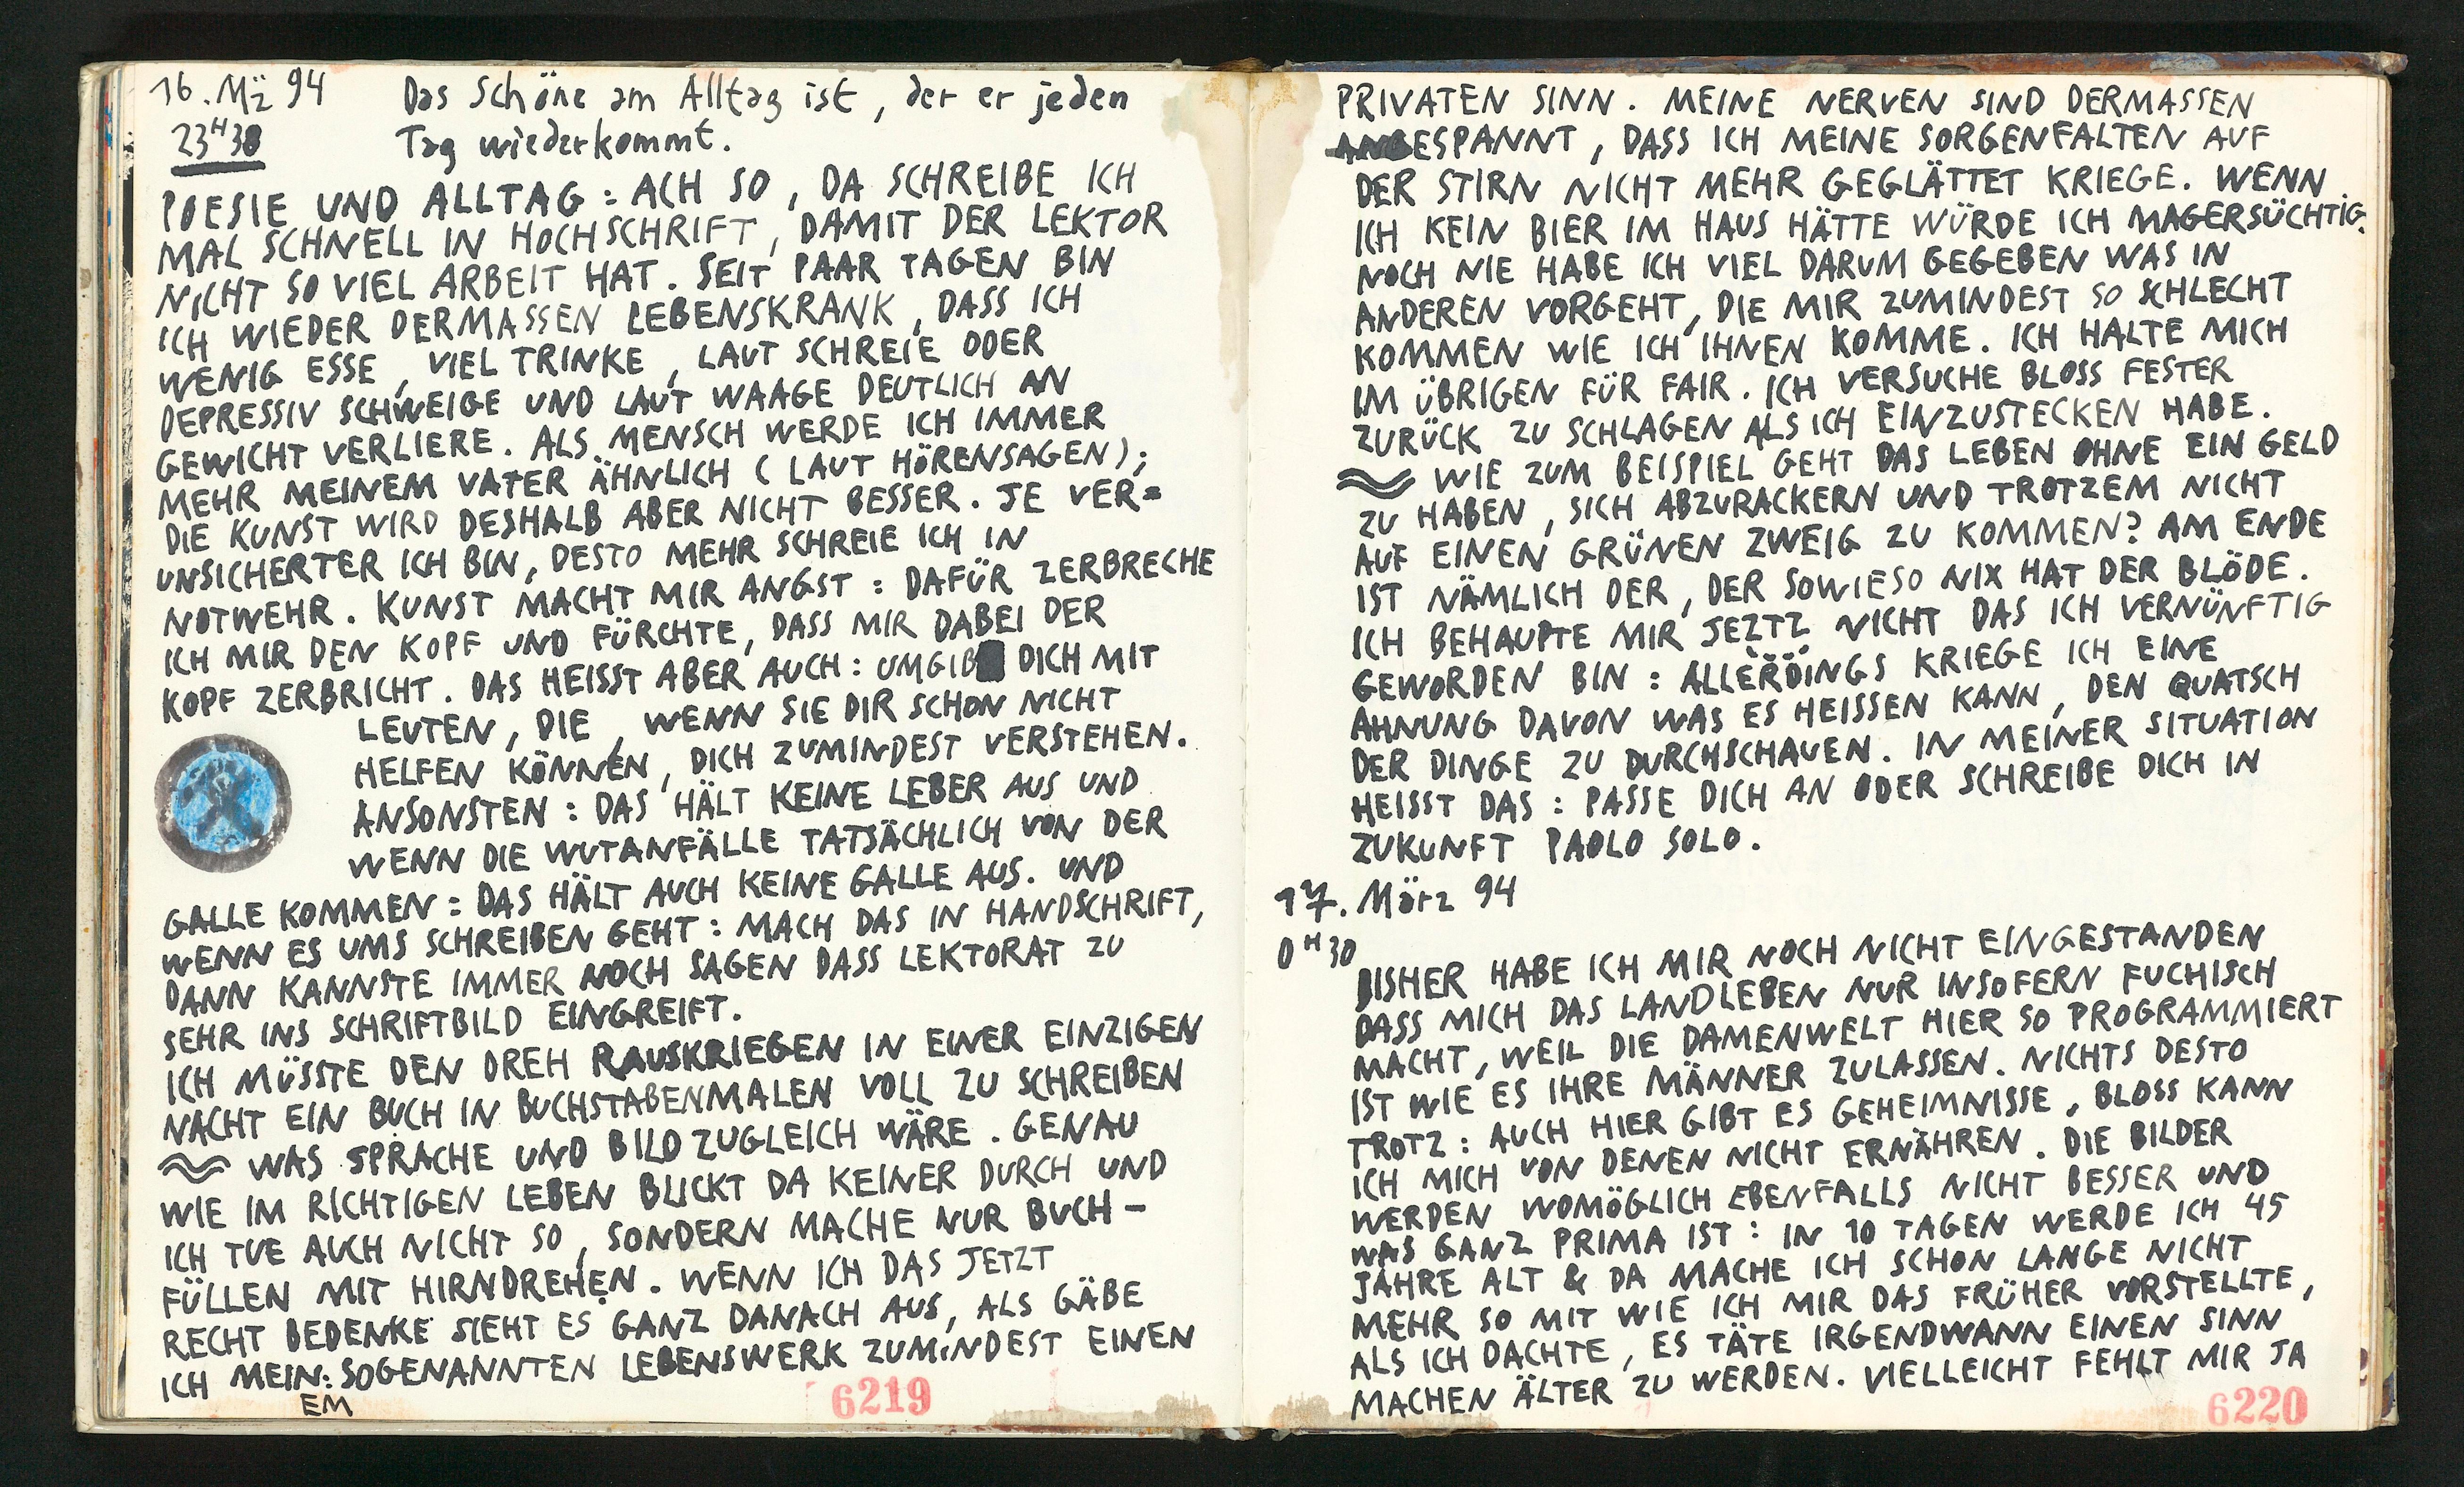 16. Mz 94
23H30
Das Schöne am Alltag ist, der er jeden
Tag wiederkommt.
POESIE UND ALLTAG: ACH SO, DA SCHREIBE ICH
MAL SCHNELL IN HOCHSCHRIFT, DAMIT DER LEKTOR
NICHT SO VIEL ARBEIT HAT. SEIT PAAR TAGEN BIN
ICH WIEDER DERMASSEN LEBENSKRANK, DASS ICH
WENIG ESSE, VIEL TRINKE, LAUT SCHREIE ODER
DEPRESSIV SCHWEIGE UND LAUT WAAGE DEUTLICH AN
GEWICHT VERLIERE. ALS MENSCH WERDE ICH IMMER
MEHR MEINEM VATER ÄHNLICH (LAUT HÖRENSAGEN);
DIE KUNST WIRD DESHALB ABER NICHT BESSER. JE VER=
UNSICHERTER ICH BIN, DESTO MEHR SCHREIE ICH IN
NOTWEHR. KUNST MACHT MIR ANGST: DAFÜR ZERBRECHE
ICH MIR DEN KOPF UND FÜRCHTE, DASS MIR DABEI DER
KOPF ZERBRICHT. DAS HEISST ABER AUCH: UMGIB DICH MIT
LEUTEN, DIE, WENN SIE DIR SCHON NICHT
HELFEN KÖNNEN, DICH ZUMINDEST VERSTEHEN.
ANSONSTEN: DAS HÄLT KEINE LEBER AUS UND
WENN DIE WUTANFÄLLE TATSÄCHLICH VON DER
GALLE KOMMEN: DAS HÄLT AUCH KEINE GALLE AUS. UND
WENN ES UMS SCHREIBEN GEHT: MACH DAS IN HANDSCHRIFT,
DANN KANNSTE IMMER NOCH SAGEN DASS LEKTORAT ZU
SEHR INS SCHRIFTBILD EINGREIFT.
ICH MÜSSTE DEN DREH RAUSKRIEGEN IN EINER EINZIGEN
NACHT EIN BUCH IN BUCHSTABENMALEN VOLL ZU SCHREIBEN
≈ WAS SPRACHE UND BILD ZUGLEICH WÄRE. GENAU
WIE IM RICHTIGEN LEBEN BLICKT DA KEINER DURCH UND
ICH TUE AUCH NICHT SO, SONDERN MACHE NUR BUCH-
FÜLLEN MIT HIRNDREHEN. WENN ICH DAS JETZT
RECHT BEDENKE SIEHT ES GANZ DANACH AUS, ALS GÄBE
ICH MEIN: SOGENANNTEN LEBENSWERK ZUMINDEST EINEN
EM
6219
PRIVATEN SINN. MEINE NERVEN SIND DERMASSEN
ANGESPANNT, DASS ICH MEINE SORGENFALTEN AUF
DER STIRN NICHT MEHR GEGLÄTTET KRIEGE. WENN
ICH KEIN BIER IM HAUS HÄTTE WÜRDE ICH MAGERSÜCHTIG.
NOCH NIE HABE ICH VIEL DARUM GEGEBEN WAS IN
ANDEREN VORGEHT, DIE MIR ZUMINDEST SO SCHLECHT
KOMMEN WIE ICH IHNEN KOMME. ICH HALTE MICH
IM ÜBRIGEN FÜR FAIR. ICH VERSUCHE BLOSS FESTER
ZURÜCK ZU SCHLAGEN ALS ICH EINZUSTECKEN HABE.
≈ WIE ZUM BEISPIEL GEHT DAS LEBEN OHNE EIN GELD
ZU HABEN, SICH ABZURACKERN UND TROTZEM NICHT
AUF EINEN GRÜNEN ZWEIG ZU KOMMEN? AM ENDE
IST NÄMLICH DER, DER SOWIESO NIX HAT DER BLÖDE.
ICH BEHAUPTE MIR JEZTZ NICHT DAS ICH VERNÜNFTIG
GEWORDEN BIN: ALLERDINGS KRIEGE ICH EINE
AHNUNG DAVON WAS ES HEISSEN KANN, DEN QUATSCH
DER DINGE ZU DURCHSCHAUEN. IN MEINER SITUATION
HEISST DAS: PASSE DICH AN ODER SCHREIBE DICH IN
ZUKUNFT PAOLO SOLO.
17. März 94
0H30
BISHER HABE ICH MIR NOCH NICHT EINGESTANDEN
DASS MICH DAS LANDLEBEN NUR INSOFERN FUCHISCH
MACHT, WEIL DIE DAMENWELT HIER SO PROGRAMMIERT
IST WIE ES IHRE MÄNNER ZULASSEN. NICHTS DESTO
TROTZ: AUCH HIER GIBT ES GEHEIMNISSE, BLOSS KANN
ICH MICH VON DENEN NICHT ERNÄHREN. DIE BILDER
WERDEN WOMÖGLICH EBENFALLS NICHT BESSER UND
WAS GANZ PRIMA IST: IN 10 TAGEN WERDE ICH 45
JAHRE ALT & DA MACHE ICH SCHON LANGE NICHT
MEHR SO MIT WIE ICH MIR DAS FRÜHER VORSTELLTE,
ALS ICH DACHTE, ES TÄTE IRGENDWANN EINEN SINN
MACHEN ÄLTER ZU WERDEN. VIELLEICHT FEHLT MIR JA
6220